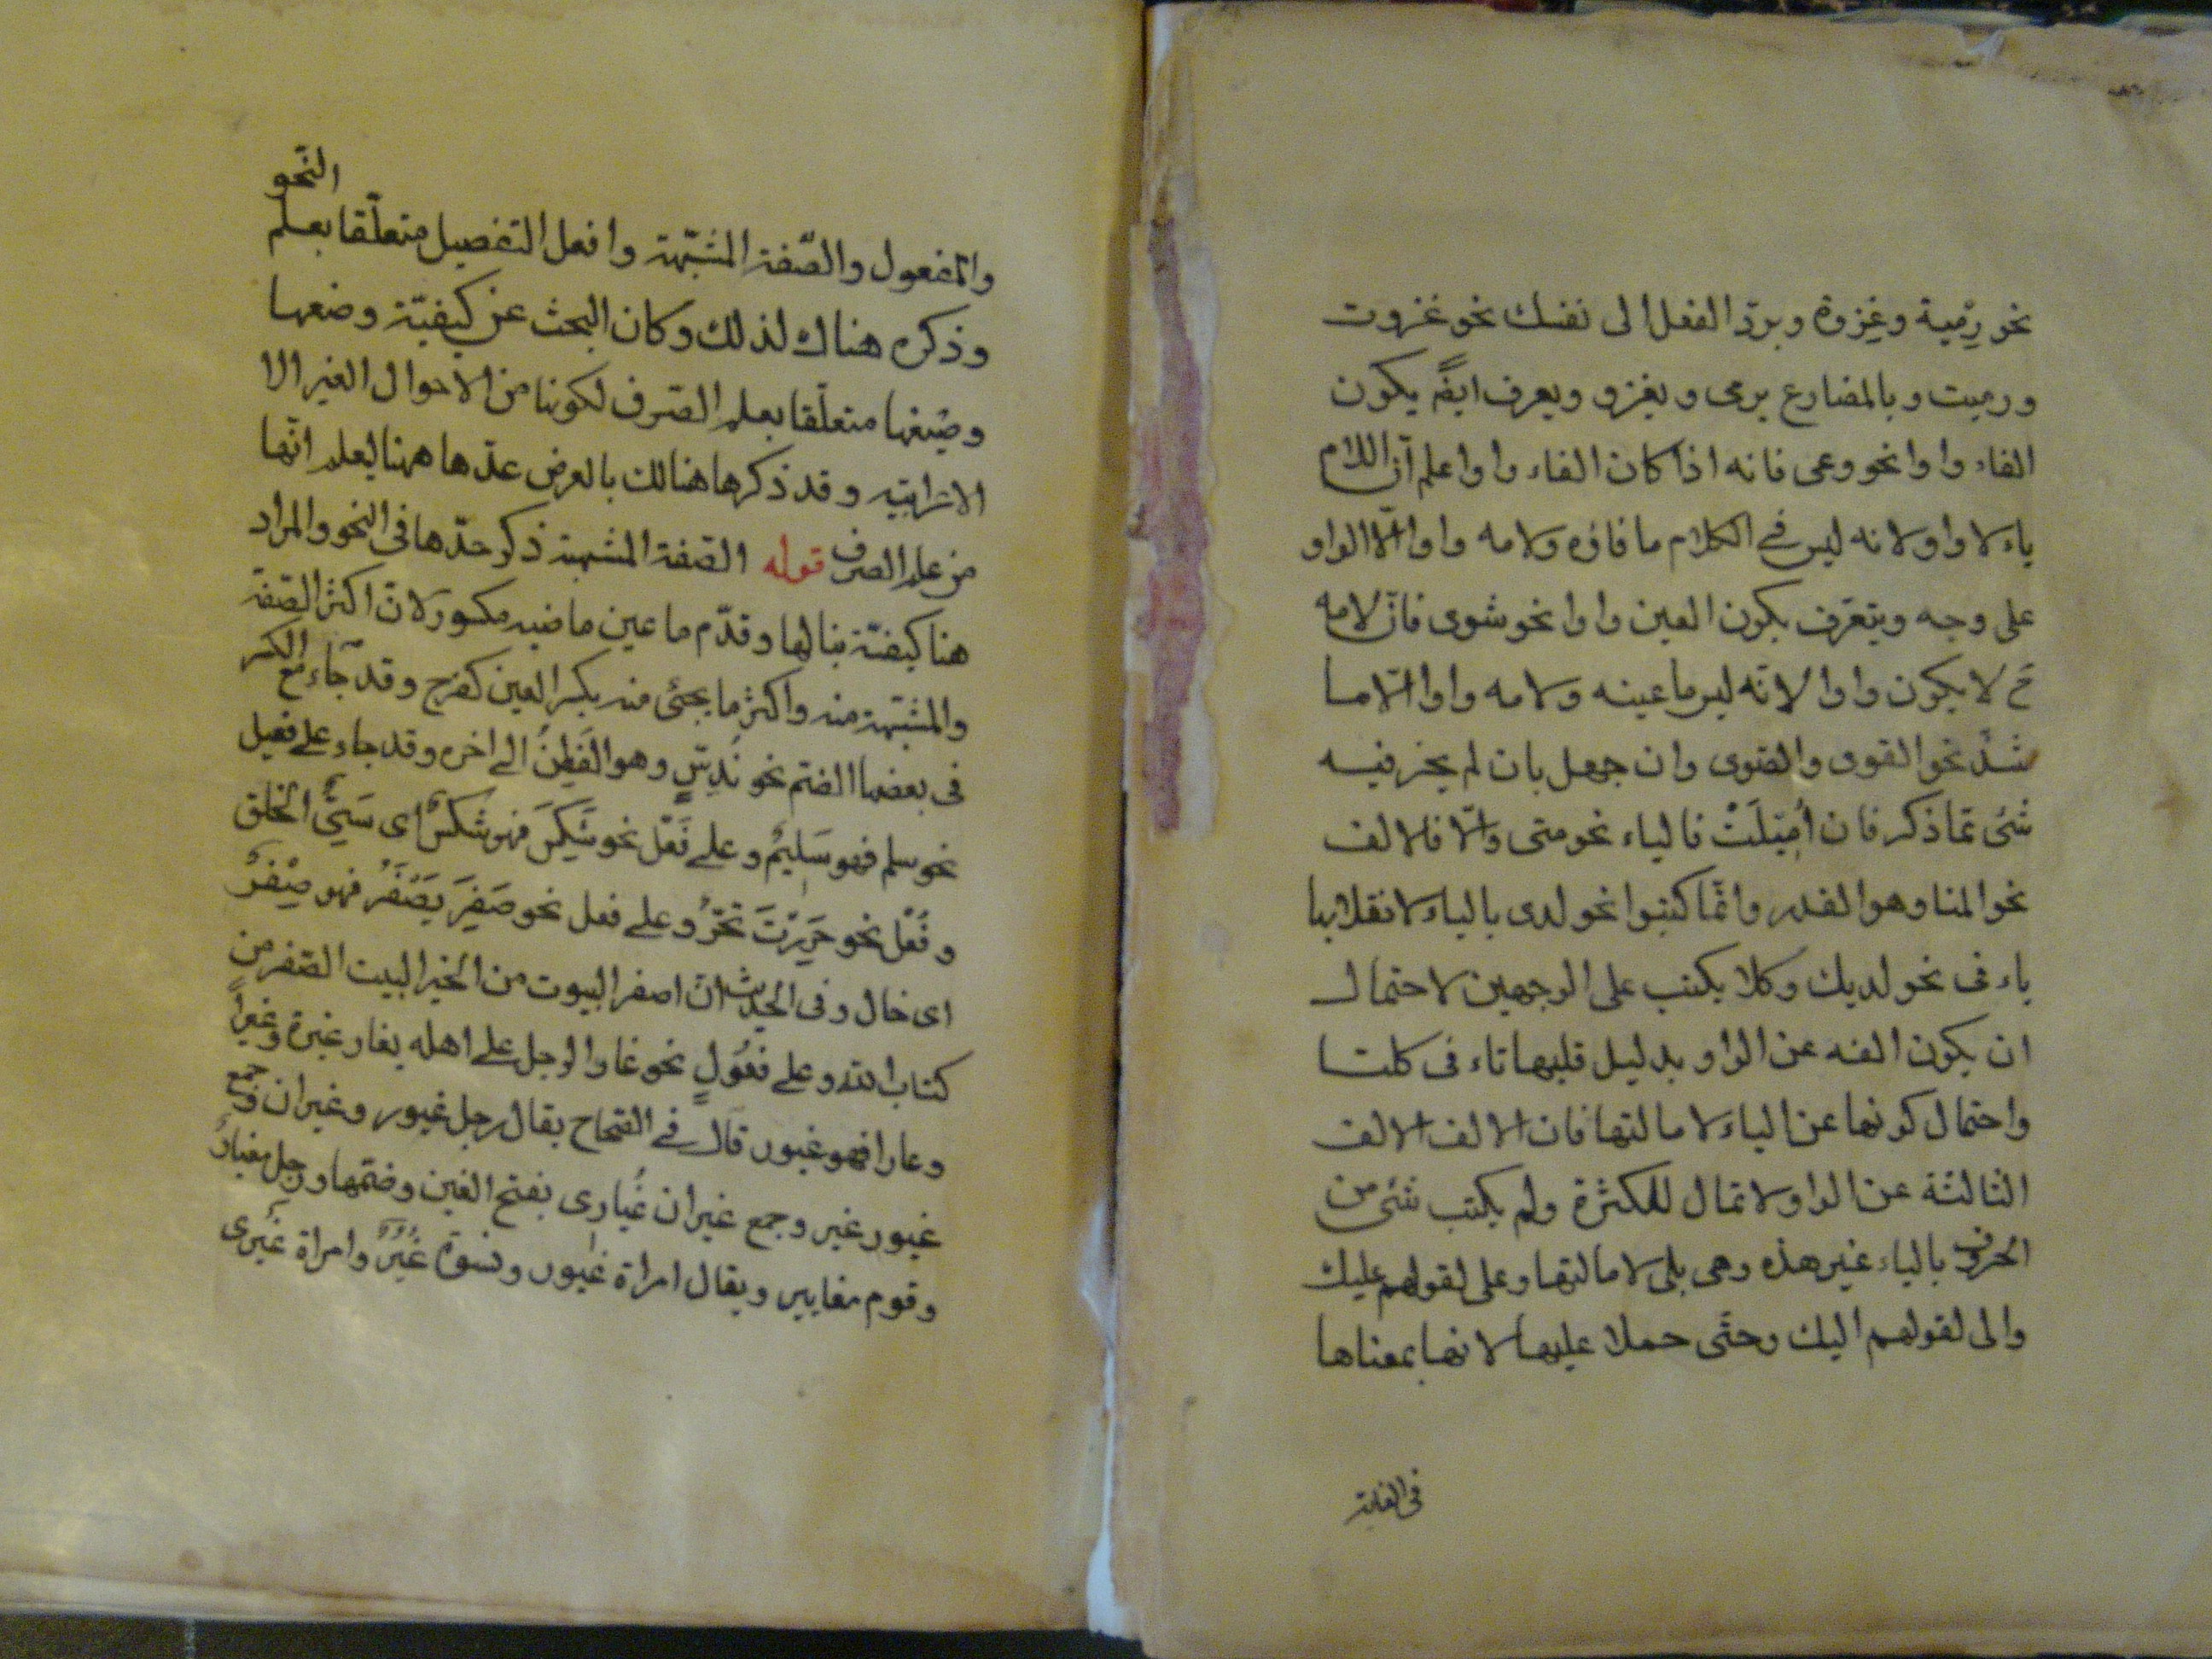 نحو رِمية وغِزوة وبردّ الفعل الى نفسك نحو غزوت
ورميت وبالمضارع يرمى ويغزو ويعرف ايضً بكون
الفاء واوا نحو وعى فانه اذا كان الفاء واوا علم انّ اللام
ياء لا واو لانه ليس فى الكلام ما فاؤه ولامه واوا الّا الواو
على وجه ويتعرّف بكون العين واوا نحو شوى فانّ لامه
ح لا يكون واوا لانّه ليس ما عينه ولامه واوا الّا ما
شذّ نحو القوى والصوى وان جهل بان لم يخر فيه
شئ مما ذكر فان اُمِيْلَتْ فالياء نحو متى والّا فالالف
نحو المنا وهو القدر وانّما كتبوا نحو لدى بالياء لانقلابها
ياء فى نحو لديك وكلا يكتب على الوجهين لاحتمال
ان يكون الفه عن الواو بدليل قلبها تاء فى كلتا
واحتمال كونها عن الياء لامالتها فان الالف الالف
الثالثة عن الواو لا تمال للكثرة ولم يكتب شئ من
الحروف بالياء غير هذه وهى بلى لامالتها وعلى لقولهم عليك
والى لقولهم اليك وحتّى حملا عليها لانها بمعناها
والمفعول والصّفة المشبّهة وافعل التفضيل متعلّقا بعلم النّحو
وذكره هناك لذلك وكان البحث عن كيفيّة وضعها
وصيغها متعلّقا بعلم الصّرف لكونها من الاحوال الغير الا
الاعرابيّه وقد ذكرها هنالك بالعرض عدّها ههنا ليعلم انّها
من علم الصرف قوله الصّفة المشبهة ذكر حدّها فى النحو والمراد
هنا كيفيّة بنائها وقدّم ما عين ماضيه مكسور لانّ اكثر الصّفة
والمشبّهة منه واكثر ما يجئ منه بكسر العين كفرح وقد جاء مع الكسر
فى بعضها الضم نحو نَدِسٌ وهو الفَطِنُ الى اخره وقد جاء على فعيل
نحو سلم فهو سَلِيمٌ وعلى فَعْل نحو شَكِسَ فهو شَكسٌ اى سَيِّئُ الخلق
وفُعْل نحو حَرِرْتَ تَحَرُّ وعلى فعل نحو صَفِرَ يَصْفَرُ فهو صِفْرٌ
اى خال وفى الحديث انّ اصفر البيوت من الخير البيت الصّفر من
كتاب الله وعلى فَعُولٍ نحو غار الرجل على اهله يغار غيرة وغَيرًا
وعارا فهو غيور قال فى الصّحاح يقال رجل غيور وغيران وجمع
غيور غير وجمع غيران غيارى بفتح الغين وضمّها ورجل مغيار
وقوم مغايير ويقال امراة غيور ونسوة غُيُرٌ وامراة غَيْرى